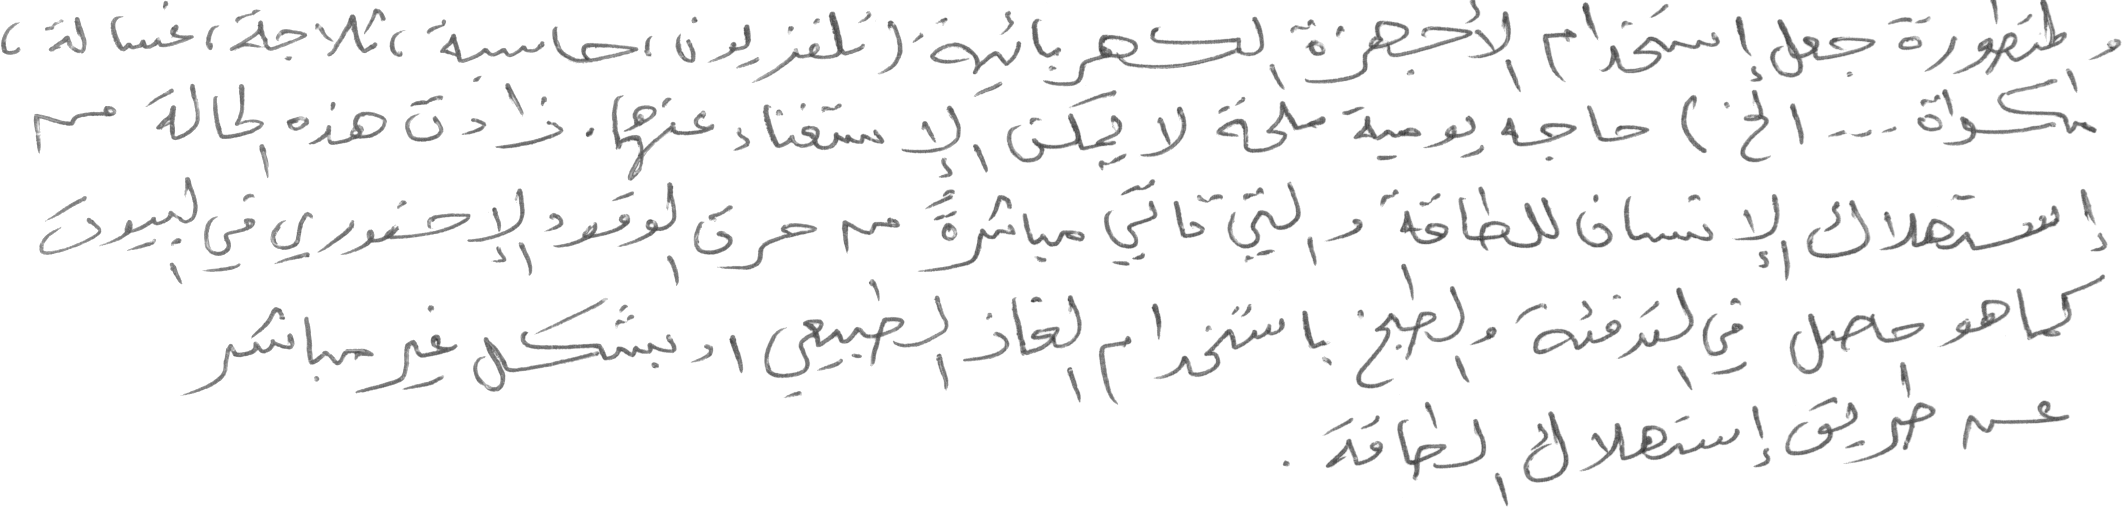 والمتطورة جعل إستخدام الأجهزة الكهربائية (تلفزيون، حاسبة، ثلاجة، غسالة،
مكواة ... الخ) حاجه يومية ملحة لا يمكن الإستغناء عنها. زادت هذه الحالة من
إستهلاك الإنسان للطاقة والتي تأتي مباشرةً من حرق الوقود الإحفوري في البيوت
كما هو حاصل في التدفئة والطبخ باستخدام الغاز الطبيعي او بشكل غير مباشر
عن طريق إستهلاك الطاقة.